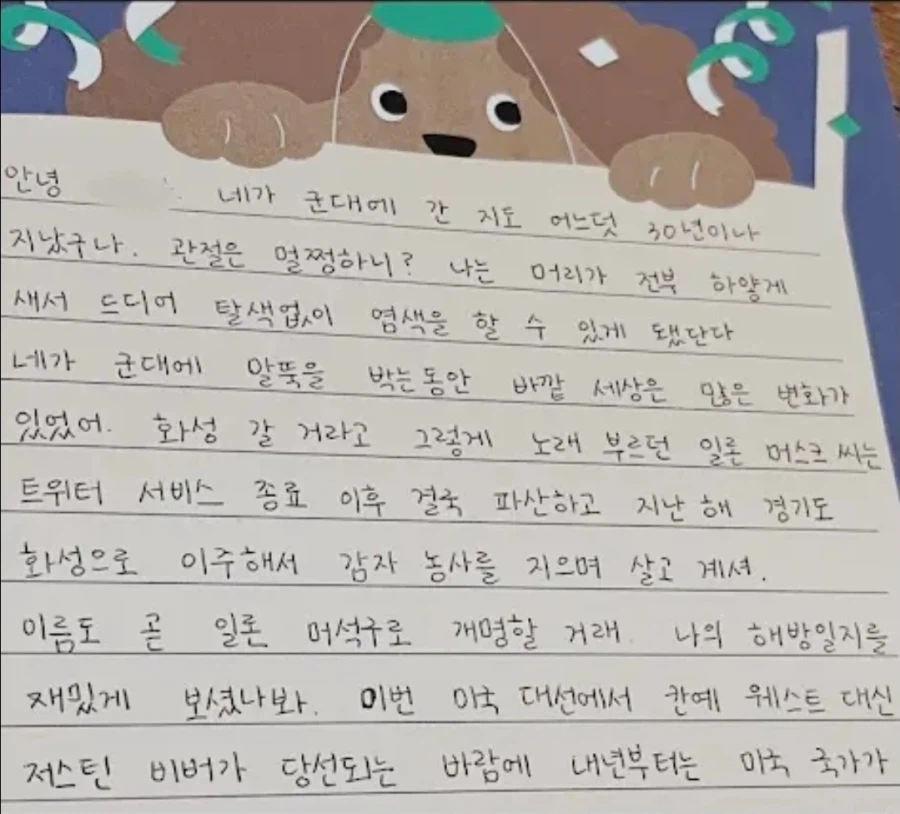 안녕 네가 군대에 간 지도 어느덧 30년이나
지났구나. 관절은 멀쩡하니? 나는 머리가 전부 하얗게
새서 드디어 탈색없이 염색을 할 수 있게 됐단다
네가 군대에 말뚝을 박는동안 바깥 세상은 많은 변화가
있었어. 화성 갈 거라고 그렇게 노래 부르던 일론 머스크 씨는
트위터 서비스 종료 이후 결국 파산하고 지난 해 경기도
화성으로 이주해서 감자 농사를 지으며 살고 계셔.
이름도 곧 일론 머석구로 개명할 거래. 나의 해방일지를
재밌게 보셨나봐. 이번 미국 대선에서 칸예 웨스트 대신
저스틴 비버가 당선되는 바람에 내년부터는 미국 국가가